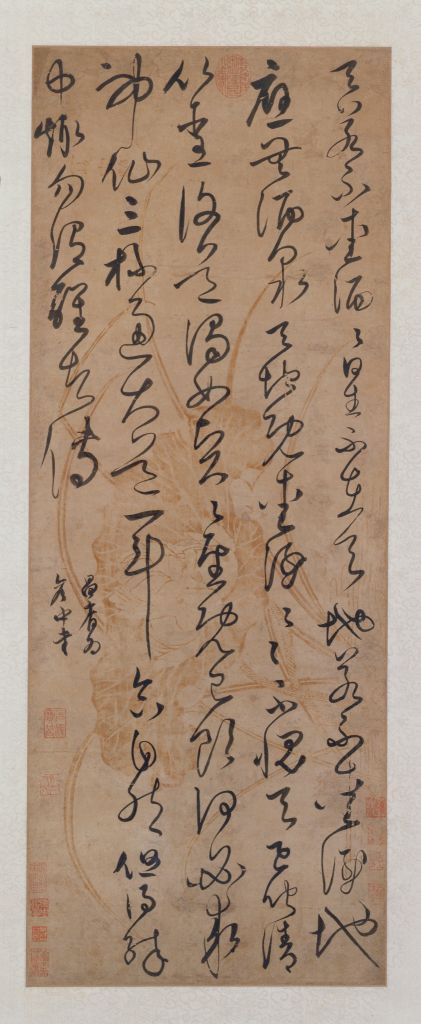 天若不愛酒〻星不在天地若不愛酒地
應無酒泉天地既愛酒〻〻不愧天已聞清
比聖復道濁如賢〻聖既已飲何必求
神仙三杯通大道一斗合自然但得醉
中趣勿謂醒者傳
為
中書